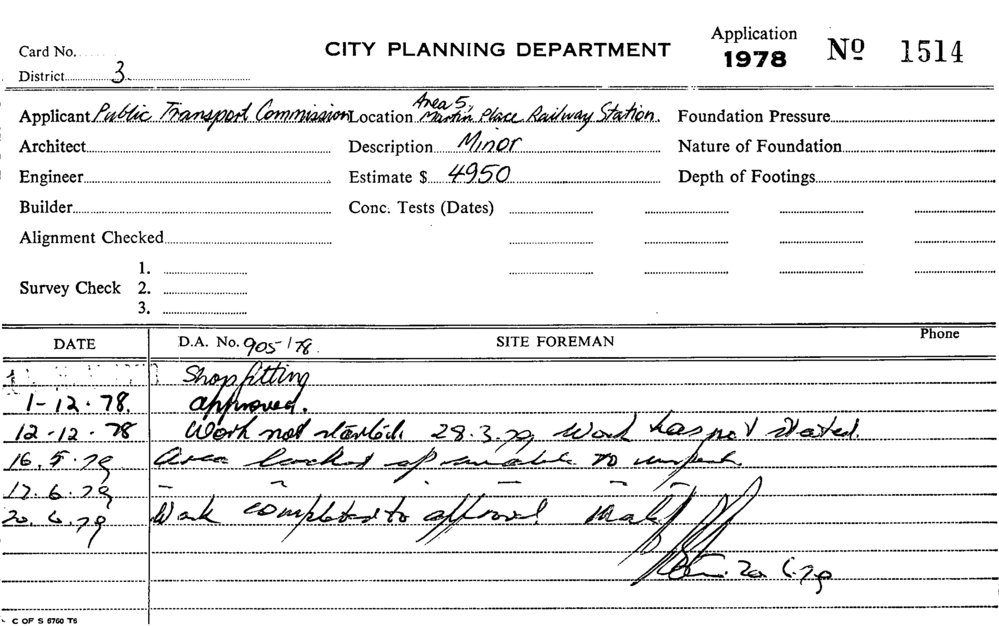 Card No.
CITY PLANNING DEPARTMENT
Application
1978
No 1514
District 3.
Applicant Public Transport Commission
Location Area 5, Martin Place Railway Station.
Foundation Pressure
Architect
Description Minor
Nature of Foundation
Engineer
Estimate $ 4950
Depth of Footings
Builder
Conc. Tests (Dates)
Alignment Checked
1.
Survey Check 2.
3.
DATE
D.A. No. 905/78.
SITE FOREMAN
Phone
Shopfitting
1-12-78. approved.
12-12-78 Work not started. 28.3.79 Work has not started.
16.5.79 Area locked up unable to inspect.
12.6.79 " " " " "
20.6.79 Work completed to approval
20.6.79
C OF S 8760 T6